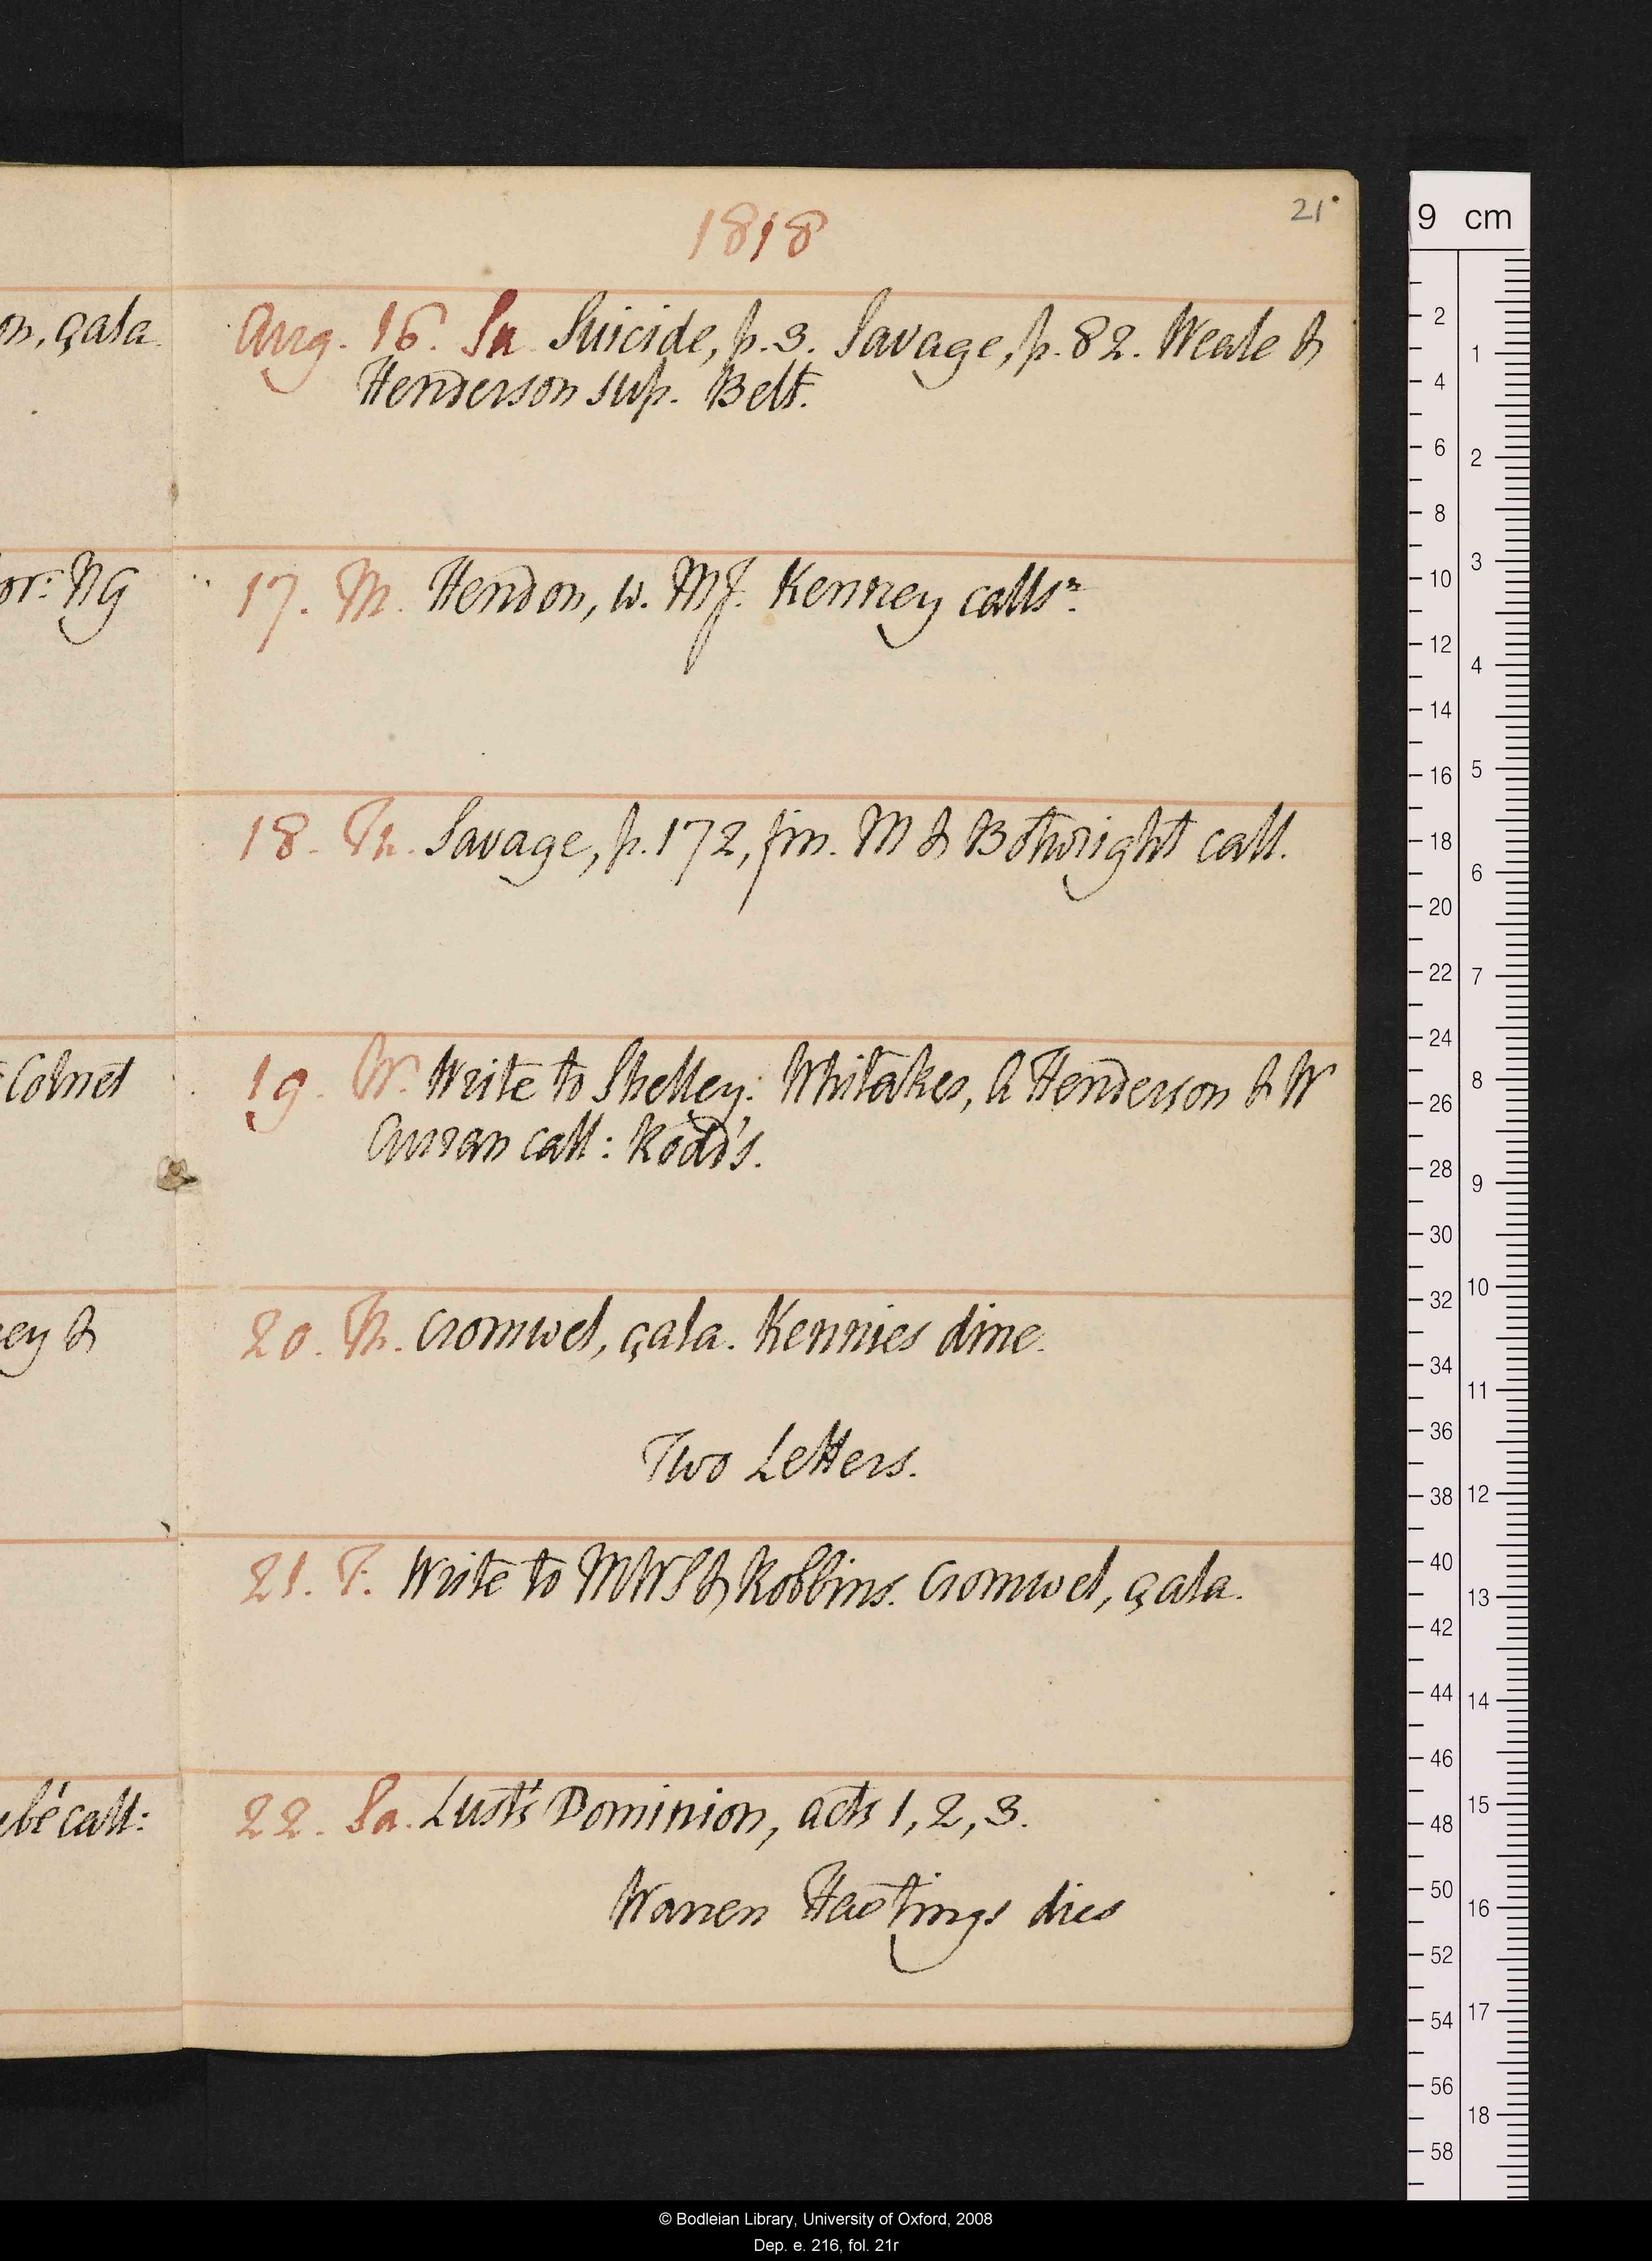 21
1818
on, çala.
Aug. 16. Su. Suicide, p. 3. Savage, p. 82. Weale &
Henderson sup. Belt.
or: NG
17. M. Hendon, w. MJ. Kenney callsⁿ.
18. Tu. Savage, p. 172, fin. M & Bothwright call.
Colnet
19. W. Write to Shelley: Whitakes, A Henderson & W
Curran call: Rodd's.
ey &
20. Th. Cromwel, çala. Kennies dine.
Two Letters.
21. F. Write to MWS & Robbins. Cromwel, çala.
bé call:
22. Sa. Lust's Dominion, acts 1, 2, 3.
Warren Hastings dies
9 cm
2
4
6
8
10
12
14
16
18
20
22
24
26
28
30
32
34
36
38
40
42
44
46
48
50
52
54
56
58
1
2
3
4
5
6
7
8
9
10
11
12
13
14
15
16
17
18
© Bodleian Library, University of Oxford, 2008
Dep. e. 216, fol. 21r